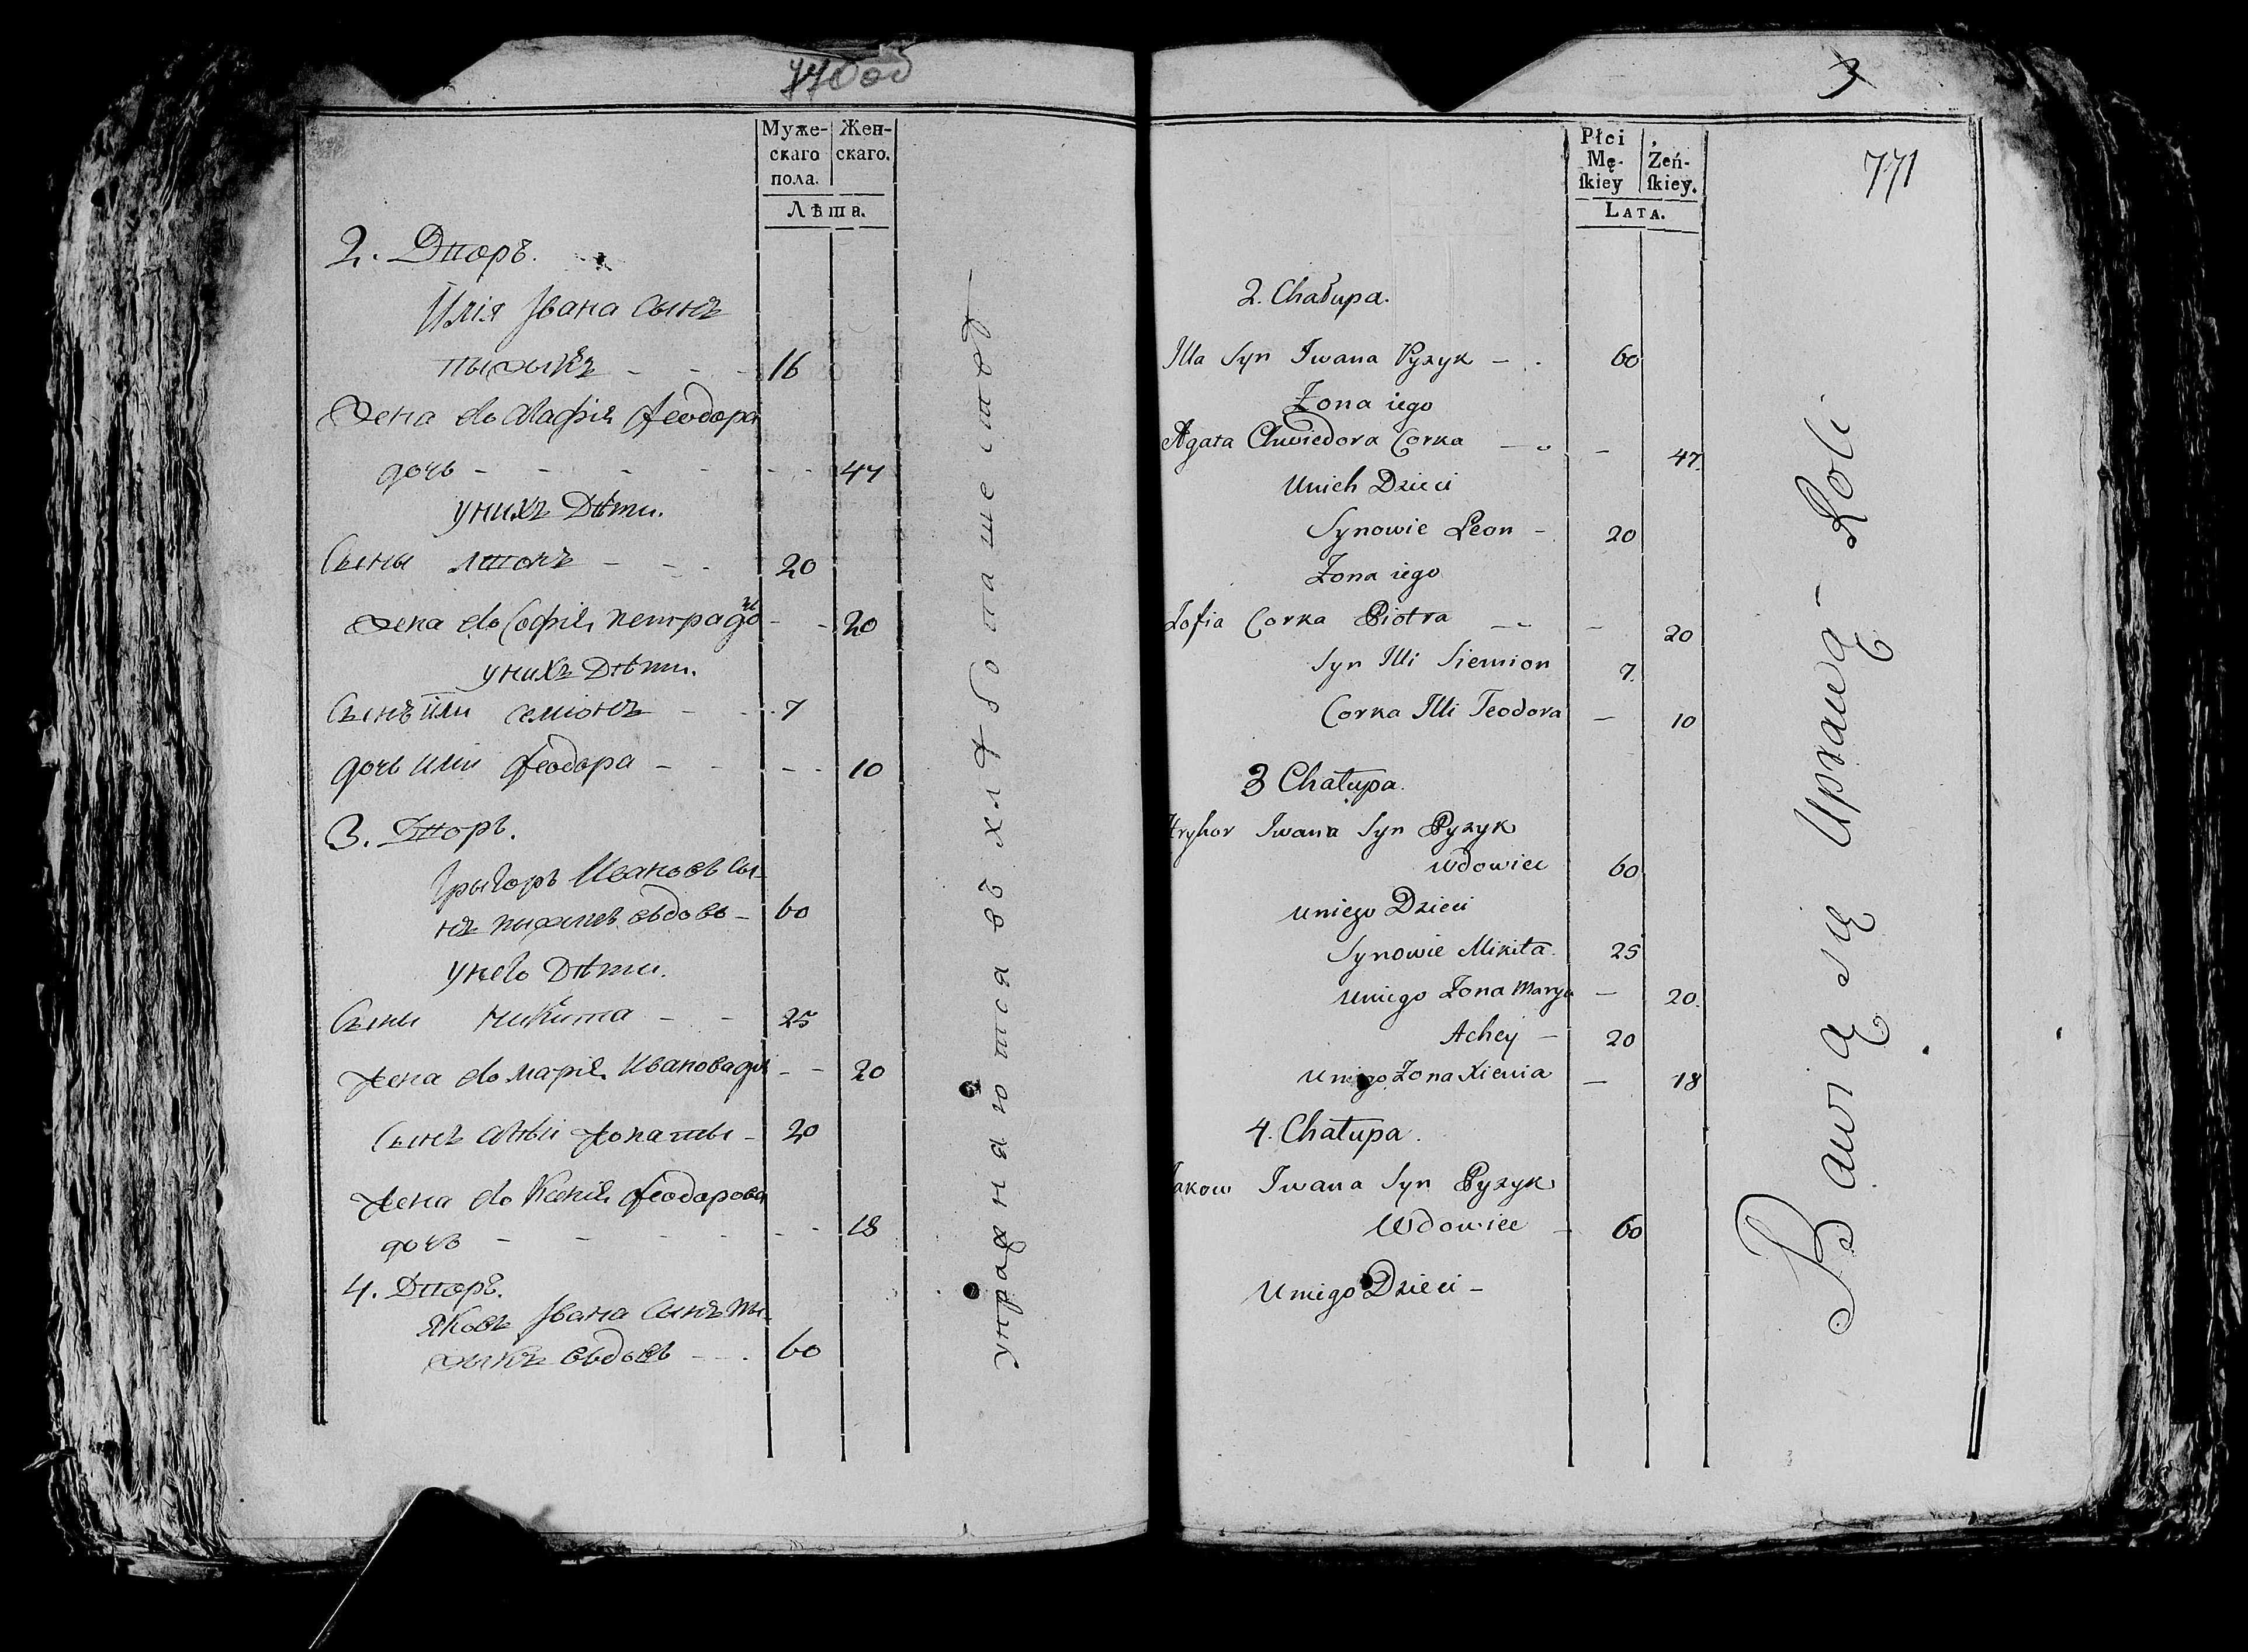 770 об
Муже-
скаго
пола.
Жен-
скаго.
Лѣта.
2. Дворъ.
Илія Ивана Сынъ
пыжикъ - - - 16
Жена его Агафія Феодора
дочь - - - - - - 47
у нихъ Дѣти.
Сыны - - - 20
Жена его Софія петра до - - 20
у нихъ Дѣти.
Сынъ Или семіонъ - - 7
дочь Илии Феодора - - - - 10
3. Дворъ.
Грыгоръ Ивановъ Сы-
нъ пыжикъ вдовъ - 60
у него Дѣти.
Сыны Никита - - 25
Жена его марія Ивановадч - - 20
Сынъ - 20
Жена его Ксенія Феодорова
дочь - - - - - - 18
4. Дворъ.
Яковъ Ивана Сынъ пы-
жикъ вдовъ - - 60
упражняются въ хлѣбопашествѣ
7
771
Płci
Mę-
ſkiey
Żeń-
ſkiey.
LATA.
2. Chałupa.
Illa Syn Iwana Pyzyk - - 60
Żona iego
Agata Chwiedora Corka - - - 47.
Unich Dzieci
Synowie Leon - 20
Żona iego
Zofia Corka Piotra - - - 20
Syn Illi Siemion 7.
Corka Illi Teodora - 10
3 Chałupa.
Hryhor Iwana Syn Pyzyk
Wdowiec 60
Uniego Dzieci
Synowie Mikita. 25
Uniego Żona Marya - 20.
Achey - 20
Uniego Żona Xienia - 18
4. Chałupa.
Jakow Iwana Syn Pyzyk
Wdowiec - 60
Uniego Dzieci -
Bawią się Uprawą - Roli